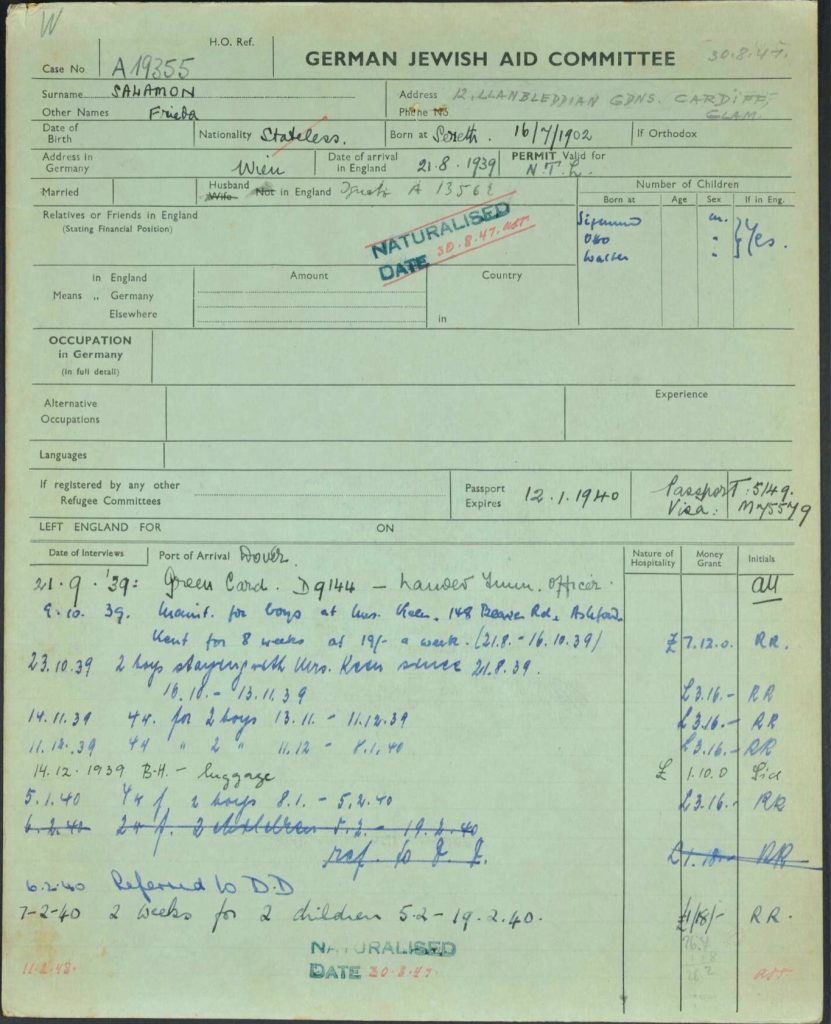 W
H.O. Ref.
Case No A19355
GERMAN JEWISH AID COMMITTEE
30.8.47.
Surname SALAMON
Other Names Frieda
Address 12, LLANBLEDDIAN GDNS. CARDIFF,
GLAM.
Phone No
Date of Birth
Nationality Stateless.
Born at Sereth. 16/7/1902
If Orthodox
Address in Germany Wien
Date of arrival in England 21.8.1939
PERMIT Valid for
N.T.L.
Married
Husband
Wife
Not in England Ignatz A 13568
Number of Children
Born at Age Sex If in Eng.
Relatives or Friends in England
(Stating Financial Position)
NATURALISED
DATE 30.8.47.
m.
Otto "
Walter "
Yes.
in England
Means " Germany
Elsewhere
Amount
Country
in
OCCUPATION
in Germany
(in full detail)
Alternative
Occupations
Experience
Languages
If registered by any other
Refugee Committees
Passport
Expires 12.1.1940
Passport: 5149.
Visa: M75579
LEFT ENGLAND FOR ON
Date of Interviews Port of Arrival Dover.
Nature of Hospitality
Money Grant
Initials
21.9.'39: Green Card. D9144 – Landed Imm. Officer.
9.10.39. Maint. for boys at Mrs. Keen, 148 Beaver Rd., Ashford
Kent for 8 weeks at 19/- a week. (21.8.-16.10.39) £7.12.0. RR.
23.10.39 2 boys staying with Mrs. Keen since 21.8.39.
16.10.- 13.11.39 £3.16.- RR
14.11.39 4w. for 2 boys 13.11.- 11.12.39 £3.16.- RR
11.12.39 4w " 2 " 11.12 - 8.1.40 £3.16.- RR
14.12.1939 B.H.- luggage £ 1.10.0
5.1.40 4w f. 2 boys 8.1.- 5.2.40 £3.16.- RR
6.2.40 2w f. 2 children 5.2.- 19.2.40
ref. to £1.18.- RR
6.2.40 Referred to D.D
7-2-40 2 weeks for 2 children 5.2-19.2.40. £1/18/- RR.
NATURALISED
DATE 30.8.47.
11.2.48.